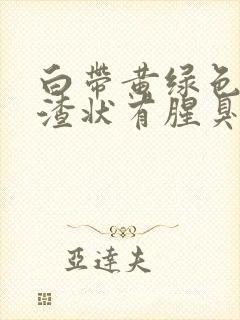 白带黄绿色
渣状有腥臭
亞達夫